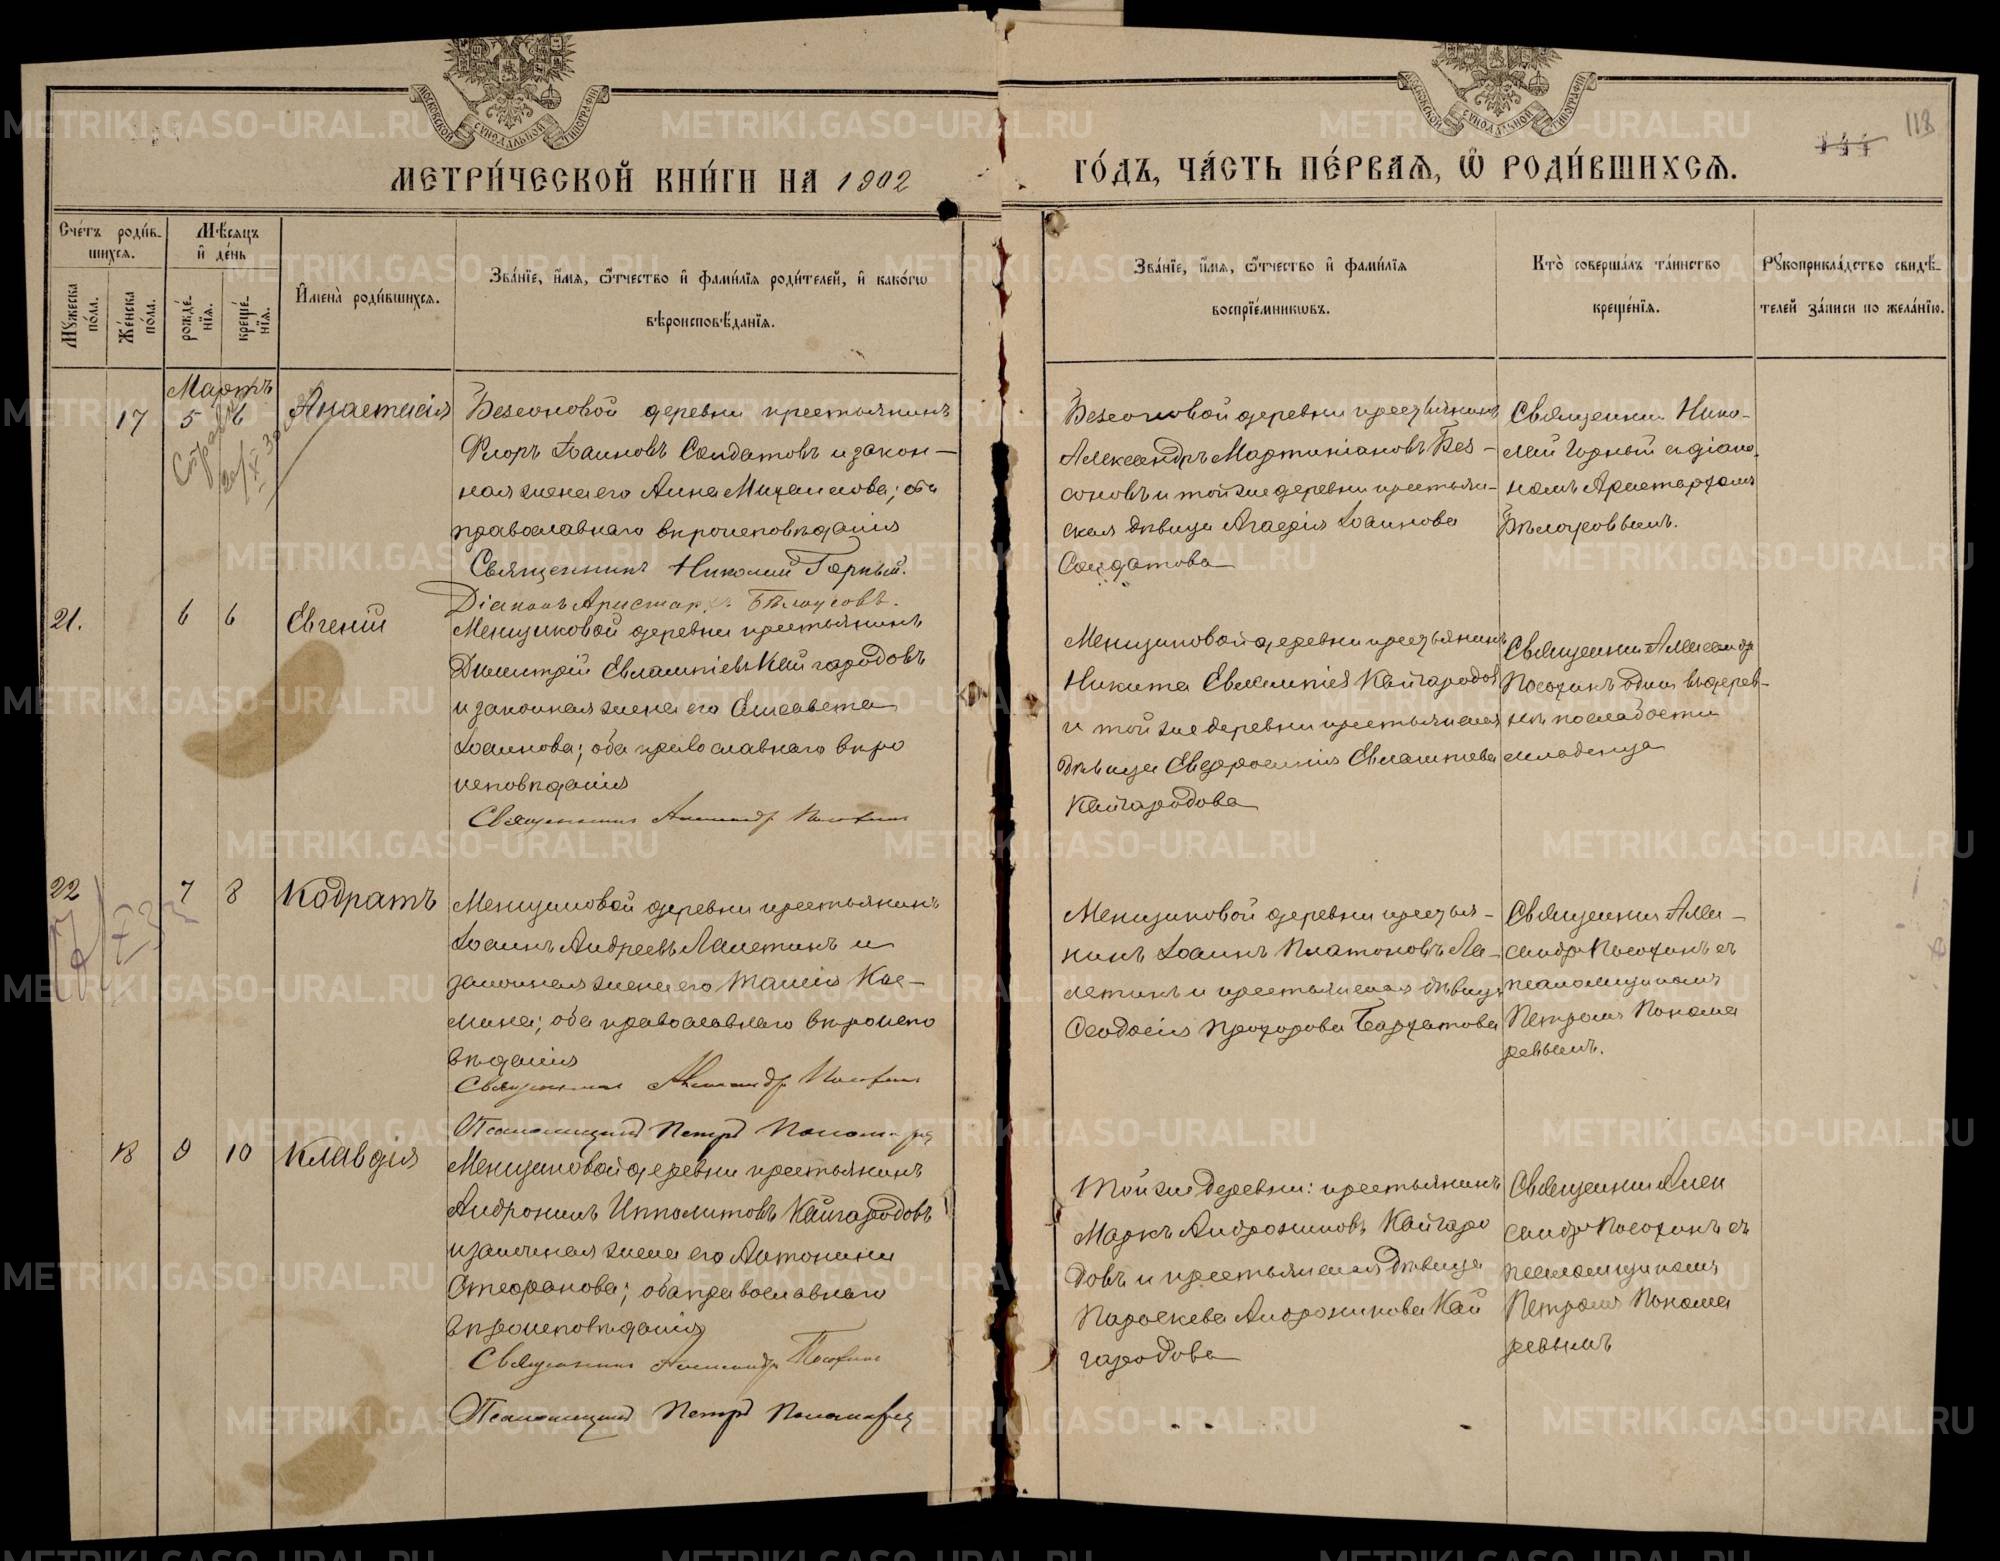 МЕТРИ́ЧЕСКОЙ КНИ́ГИ НА 1902
ГО́ДЪ, ЧА́СТЬ ПЕ́РВАѦ, Ѽ РОДИ́ВШИХСѦ.
118
МОСКОВСКОЙ СѴНОДАЛЬНОЙ ТИПОГРАФІИ
МОСКОВСКОЙ СѴНОДАЛЬНОЙ ТИПОГРАФІИ
Сче́тъ роди́в-
шихсѧ.
Мѣ́сѧцъ
и҆ де́нь
Мꙋ́жеска
по́ла.
Же́нска
по́ла.
рожде́-
нїѧ.
креще́-
нїѧ.
И҆мена̀ роди́вшихсѧ.
Зва́нїе, и҆́мѧ, ѻ҆́тчество и҆ фами́лїѧ роди́телей, и҆ како́гѡ
вѣроисповѣ́данїѧ.
Зва́нїе, и҆́мѧ, ѻ҆́тчество и҆ фами́лїѧ
воспрїе́мникѡвъ.
Кто̀ соверша́лъ та́инство
креще́нїѧ.
Рꙋкоприкла́дство свидѣ́-
телей за́писи по жела́нїю.
Мартъ
17 5 6 Анастасія
Безсоновой деревни крестьянинъ
Флоръ Іоанновъ Солдатовъ и закон-
ная жена его Анна Михаилова; оба
православнаго вѣроисповѣданія
Священникъ Николай Горный.
Діаконъ Аристархъ Бѣлоусовъ.
Безсоновой деревни крестьянинъ
Александръ Мартиніановъ Без-
соновъ и той же деревни крестьян-
ская дѣвица Агафія Іоаннова
Солдатова
Священникъ Нико-
лай Горный с діако-
номъ Аристархомъ
Бѣлоусовымъ.
21. 6 6 Евгеній
Менщиковой деревни крестьянинъ
Димитрій Евлампіевъ Кайгородовъ
и законная жена его Елисавета
Іоаннова; оба православнаго вѣро
исповѣданія
Священникъ Александръ Посохинъ
Менщиковой деревни крестьянинъ
Никита Евлампіев Кайгародов
и той же деревни крестьянская
дѣвица Евфросинія Евлампіева
Кайгародова
Священникъ Александр
Посохинъ один въ дерев-
нѣ по слабости
младенца
22 7 8 Кодратъ
Менщиковой деревни крестьянинъ
Іоаннъ Андреевъ Ласткинъ и
законная жена его Таисія Кос-
мина; оба православнаго вѣроиспо
вѣданія
Священникъ Александръ Посохинъ
Псаломщикъ Петръ Пономарев
Менщиковой деревни крестья-
нинъ Іоаннъ Платоновъ Ла-
и крестьянская дѣвица
Феодосія Прохорова Бархатова
Священникъ Алек-
сандръ Посохинъ съ
псаломщикомъ
Петромъ Понома
ревымъ.
18 9 10 Клавдія
Менщиковой деревни крестьянинъ
Андроникъ Ипполитовъ Кайгародовъ
и законная жена его Антонина
Стефанова; оба православнаго
вѣроисповѣданія
Священникъ Александръ Посохинъ
Псаломщикъ Петръ Пономарев
Той же деревни: крестьянинъ
Маркъ Андрониковъ Кайгаро
довъ и крестьянская дѣвица
Параскева Андроникова Кай
гародова
Священникъ Алек
сандръ Посохинъ съ
псаломщикомъ
Петромъ Понома
ревымъ
METRIKI.GASO-URAL.RU